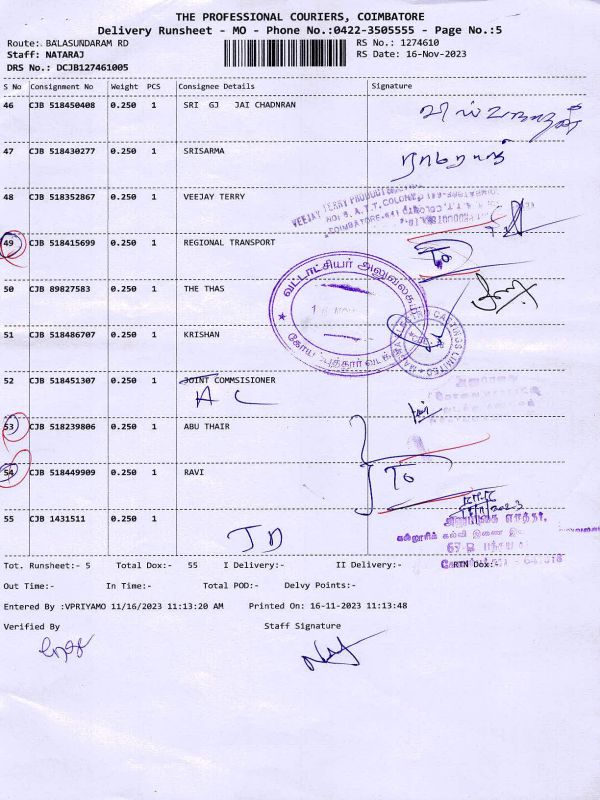 THE PROFESSIONAL COURIERS, COIMBATORE
Delivery Runsheet - MO - Phone No.:0422-3505555 - Page No.:5
Route: BALASUNDARAM RD RS No.: 1274610
Staff: NATARAJ RS Date: 16-Nov-2023
DRS No.: DCJB127461005
S No Consignment No Weight PCS Consignee Details Signature
46 CJB 518450408 0.250 1 SRI GJ JAI CHADNRAN
47 CJB 518430277 0.250 1 SRISARMA
48 CJB 518352867 0.250 1 VEEJAY TERRY
VEEJAY TERRY PRODUCTS
NO: 9, A.T.T. COLONY
COIMBATORE-641
49 CJB 518415699 0.250 1 REGIONAL TRANSPORT To
வட்டாட்சியர் அலுவலகம்
50 CJB 89827583 0.250 1 THE THAS
51 CJB 518486707 0.250 1 KRISHAN
52 CJB 518451307 0.250 1 JOINT COMMSISIONER
A C
53 CJB 518239806 0.250 1 ABU THAIR
54 CJB 518449909 0.250 1 RAVI To
55 CJB 1431511 0.250 1
JD
Tot. Runsheet:- 5 Total Dox:- 55 I Delivery:- II Delivery:- RTN Dox:-
Out Time:- In Time:- Total POD:- Delvy Points:-
Entered By :VPRIYAMO 11/16/2023 11:13:20 AM Printed On: 16-11-2023 11:13:48
Verified By Staff Signature